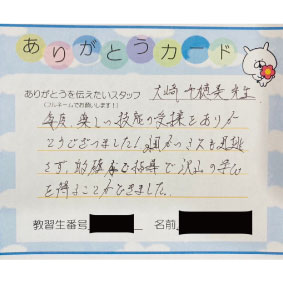 ありがとうカード
ありがとうを伝えたいスタッフ 大崎 千穂美 先生
(フルネームでお願いします!)
毎度 楽しい技能の実践をありが
とうございました!
さず、的確な指導で沢山の学び
を得ることができました。
教習生番号 名前